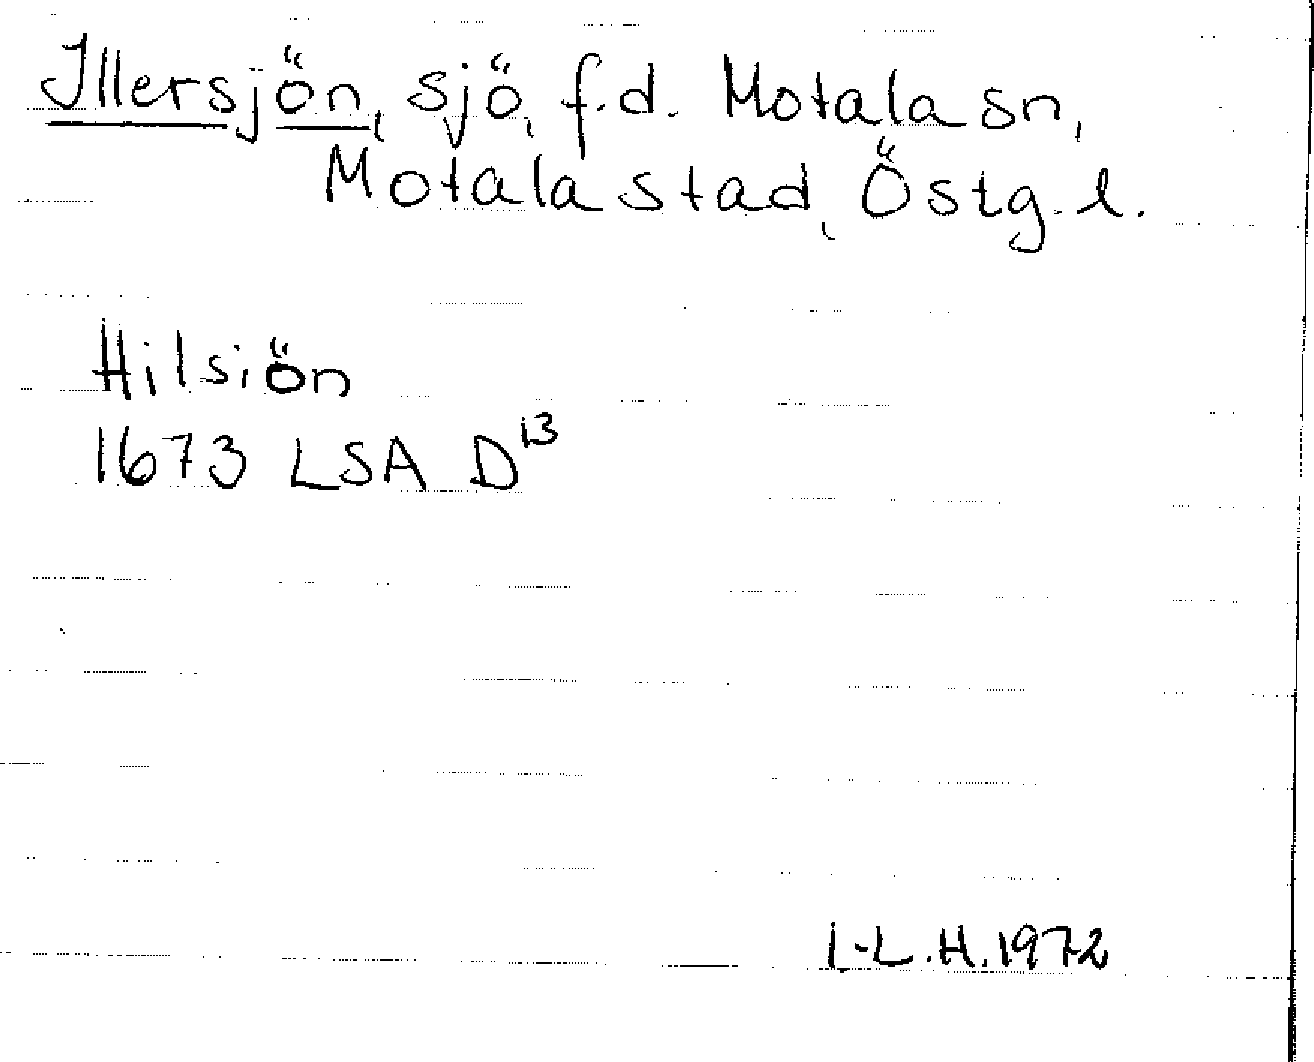 Illersjön, sjö, f.d. Motala sn,
Motala stad, Östg. l.
Hilsiön
1673 LSA D13
I-L.H. 1972